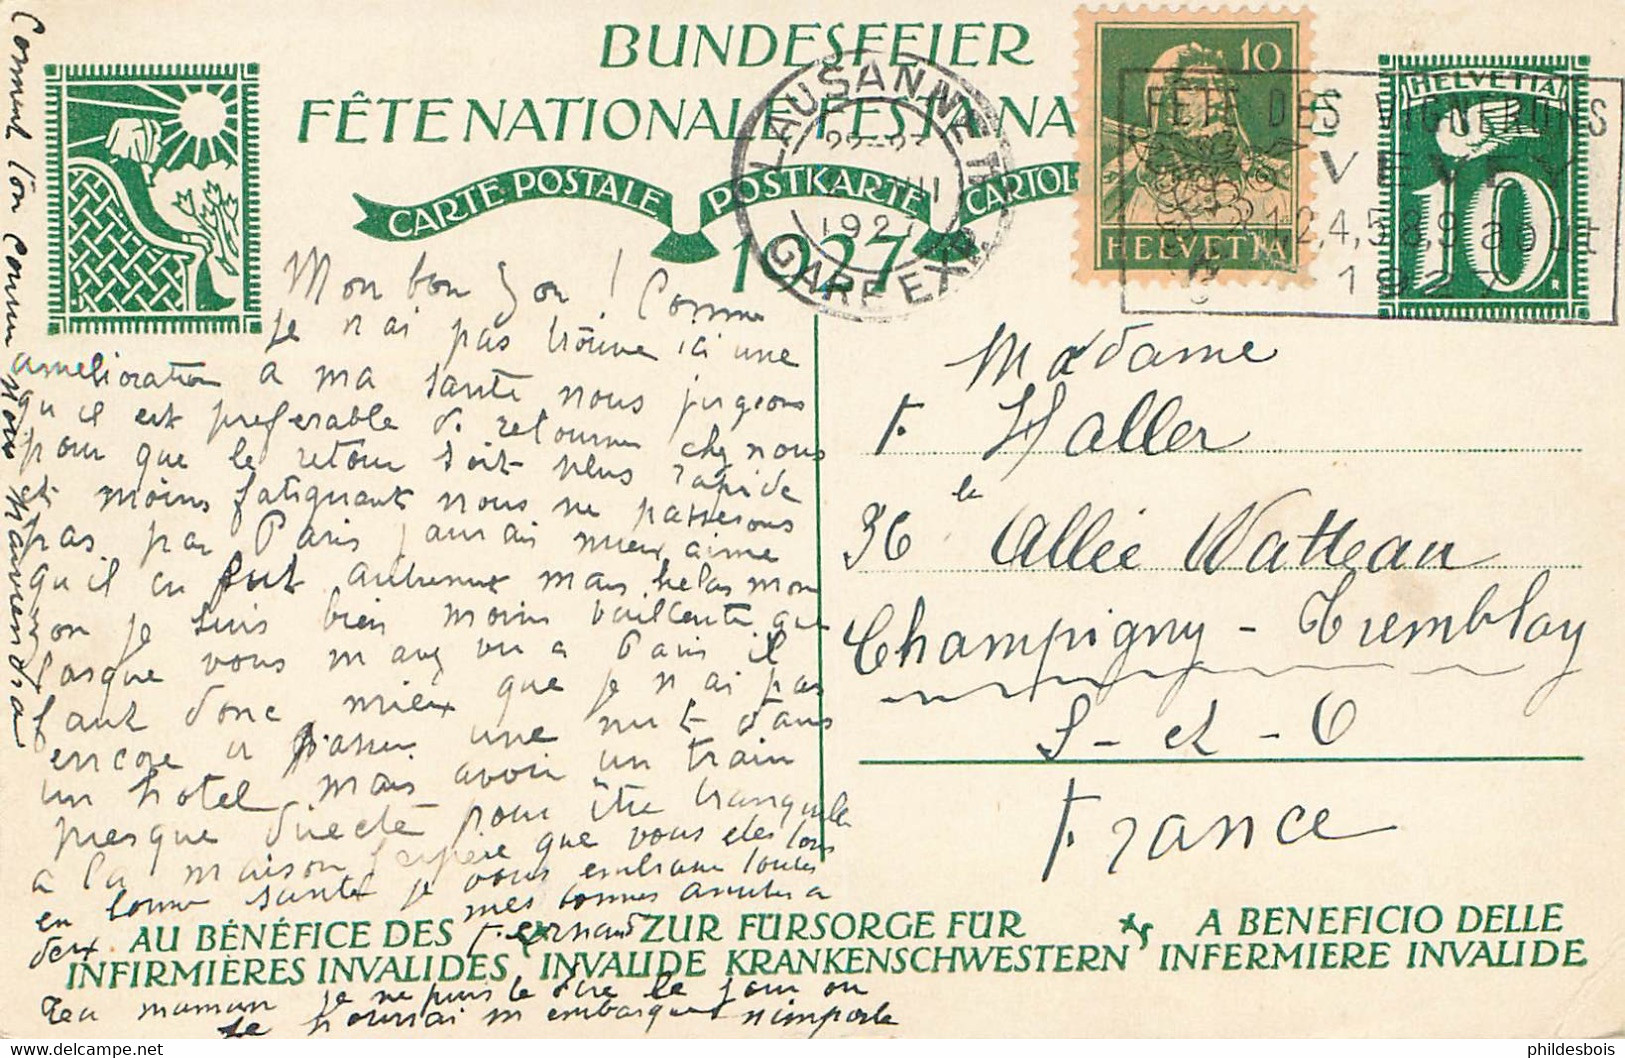 BUNDESFEIER
FÊTE NATIONALE FESTA NA
CARTE POSTALE POSTKARTE CARTOL
1927
LAUSANNE
1927
GARE EXP.
10
HELVETIA
HELVETIA
10
FÊTE DES VIGNERONS
VEVEY
1,2,4,5,8,9 août
1927
Mon bon Yon ! Comme
je n ai pas trouvé ici une
amelioration a ma santé nous jugeons
qu il est preferable de retourner chez nous
pour que le retour soit plus rapide
et moins fatiguant nous ne passerons
pas par Paris j aurais mieux aimé
qu il en fut autrement mais helas mon
on je suis bien moins vaillente que
lorsque vous m avez vu a Paris il
faut donc mieux que je n ai pas
encore a passer une nuit dans
un hotel mais avoir un train
presque directe pour être tranquille
a la maison j espère que vous etes tous
en bonne santé je vous embrasse toutes
deux mes bonnes amities a
Fernand
Madame
F. Haller
36 Allée Watteau
Champigny - Tremblay
S - et - O
France
AU BÉNÉFICE DES ZUR FÜRSORGE FÜR A BENEFICIO DELLE
INFIRMIÈRES INVALIDES INVALIDE KRANKENSCHWESTERN INFERMIERE INVALIDE
Ta maman je ne puis te dire le jour ou
je pourrai m embarquer n importe
Comment l'on Comme nous viendra
phildesbois